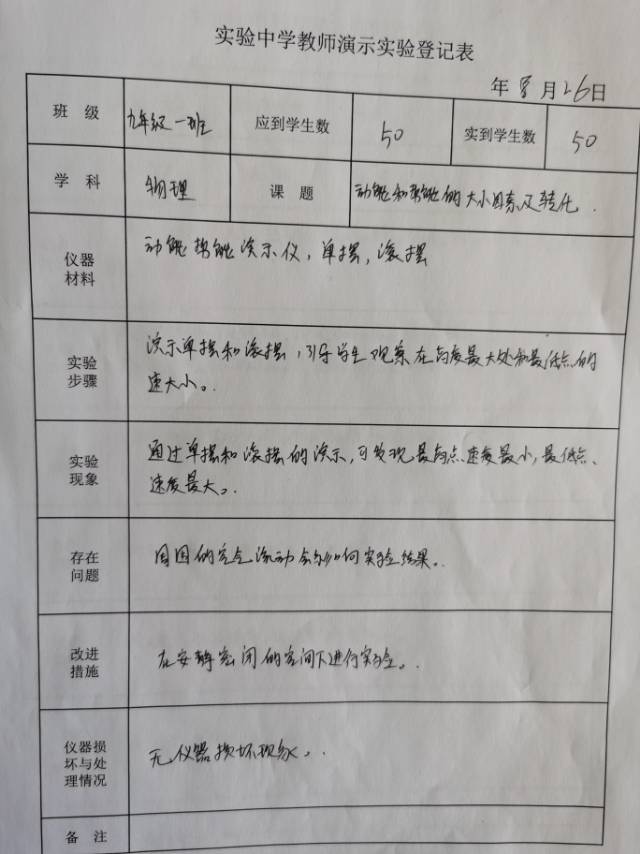 实验中学教师演示实验登记表
年 8 月 26日
班 级 九年级一班 应到学生数 50 实到学生数 50
学 科 物理 课 题 动能和势能的大小因素及转化.
仪器
材料
动能势能演示仪,单摆,滚摆
实验
步骤
演示单摆和滚摆,引导学生观察在高度最大处和最低点的
速大小。
实验
现象
通过单摆和滚摆的演示,可发现最高点速度最小,最低点、
速度最大。
存在
问题
周围的空气流动会影响实验结果。
改进
措施
在安静密闭的空间下进行实验。
仪器损
坏与处
理情况
无仪器损坏现象。
备 注